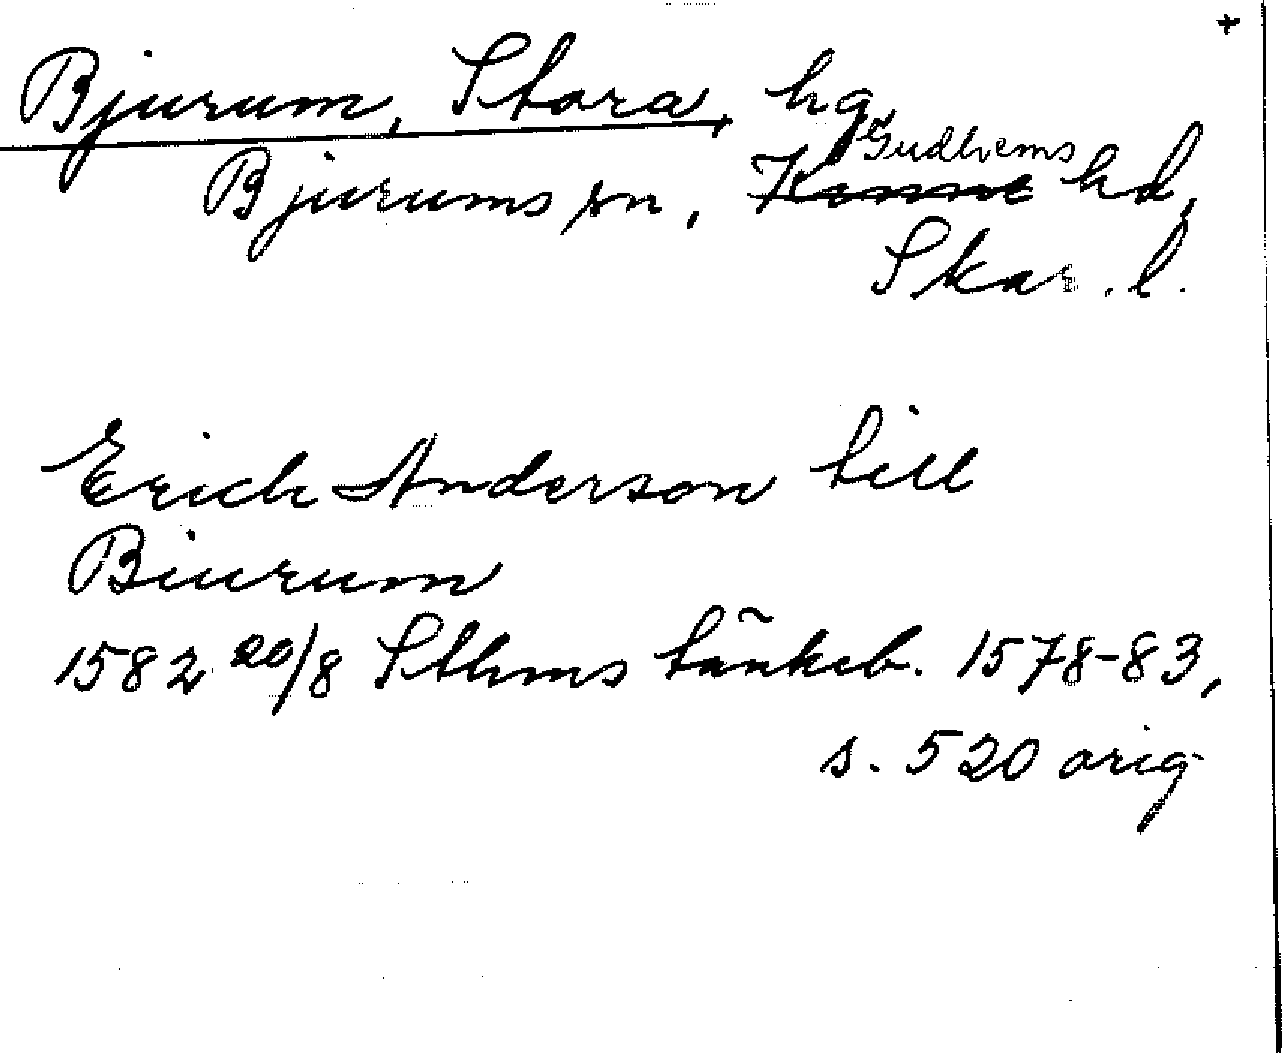 +
Bjurum, Stora, hg
Gudhems
Bjurums sn, Kinne hd,
Skar. l.
Erich Anderson till
Biurum
1582 20/8 Sthms tänkeb. 1578-83,
s. 520 orig